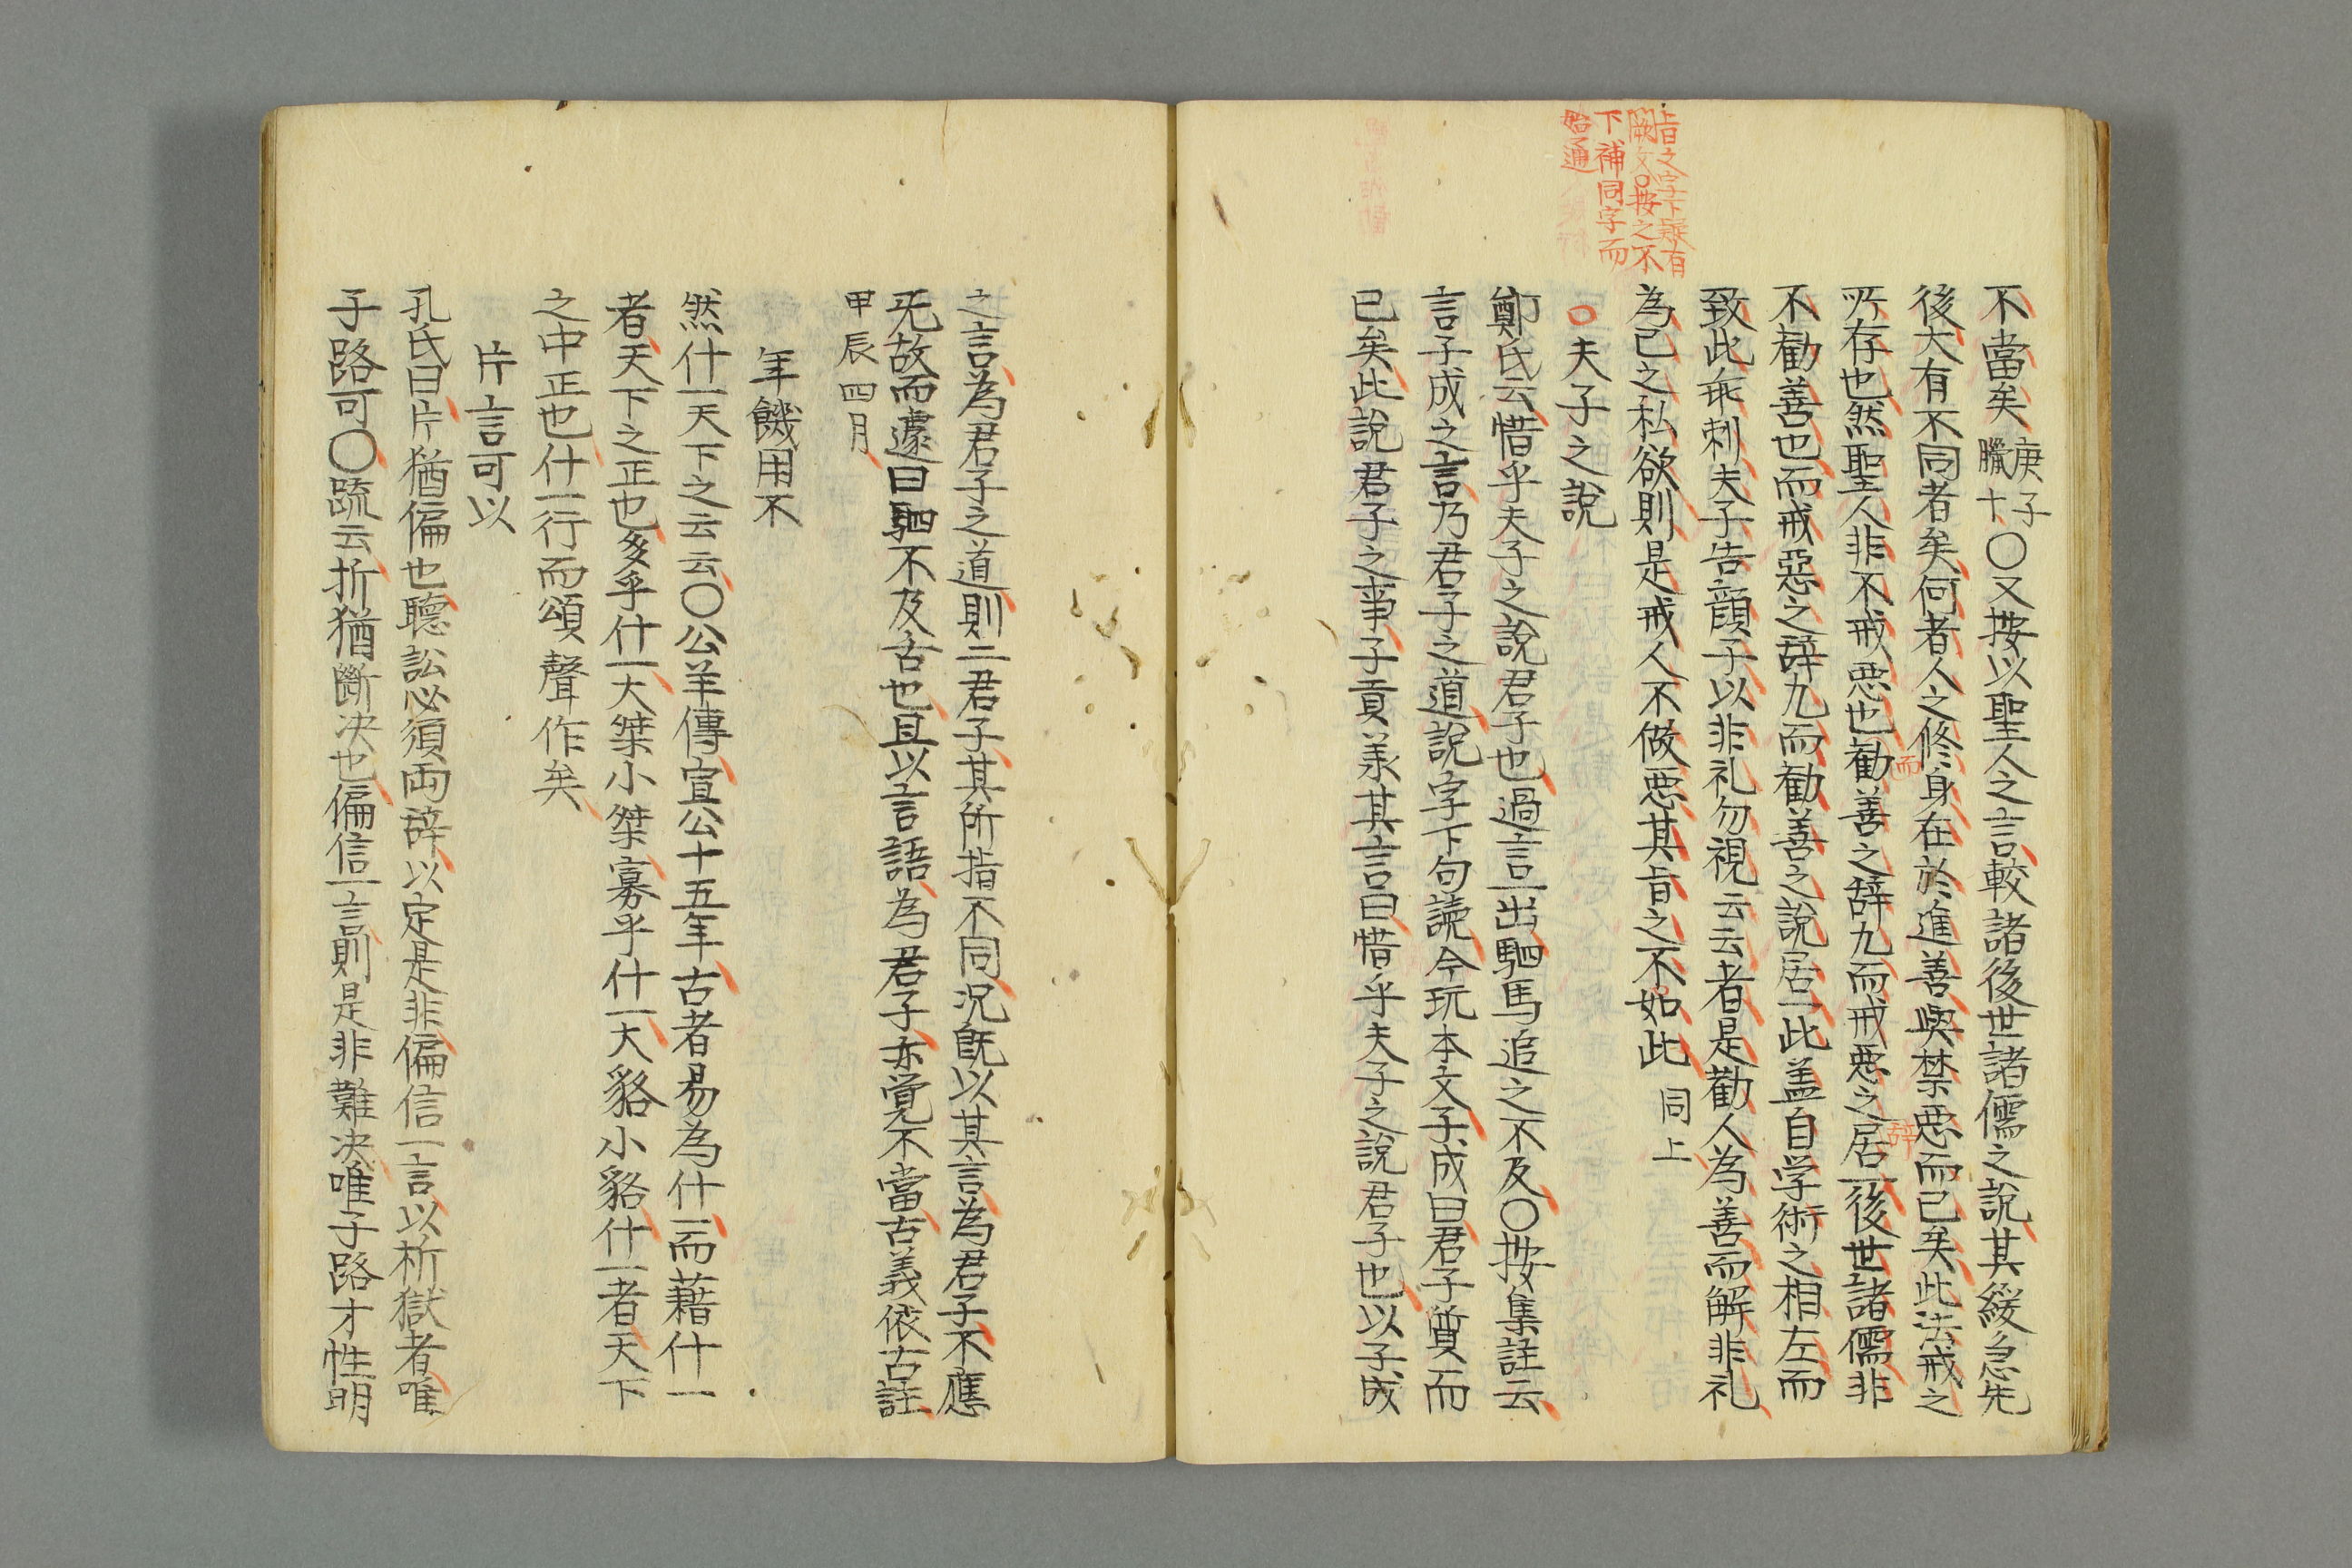 旨之字下疑有
闕文〇按之不
下補同字而
始通
不當矣庚子臘十〇又按以聖人之言較諸後世諸儒之說其緩急先
後大有不同者矣何者人之修身在於進善與禁悪而已矣此法戒之
所存也然聖人非不戒悪也勧善之辞九而戒悪之居一後世諸儒非
而
辞
不勧善也而戒惡之辞九而勧善之說居一此盖自学術之相左而
致此乖剌夫子告顔子以非礼勿視云云者是勧人為善而解非礼
為己之私欲則是戒人不做悪其旨之不如此同上
〇夫子之說
鄭氏云惜乎夫子之說君子也過言一出駟馬追之不及〇按集註云
言子成之言乃君子之道說字下句讀今玩本文子成曰君子質而
已矣此說君子之事子貢美其言曰惜乎夫子之說君子也以子成
之言為君子之道則二君子其所指不同况既以其言為君子不應
无故而遽曰駟不及舌也且以言語為君子亦覚不當古義依古註
甲辰四月
年饑用不
然什一天下之云云〇公羊傳宣公十五年古者易為什一而藉什一
者天下之正也多乎什一大桀小桀寡乎什一大貉小貉什一者天下
之中正也什一行而頌聲作矣
片言可以
孔氏曰片猶偏也聴訟必須両辞以定是非偏信一言以析獄者唯
子路可〇䟽云折猶斷决也偏信一言則是非難决唯子路才性明